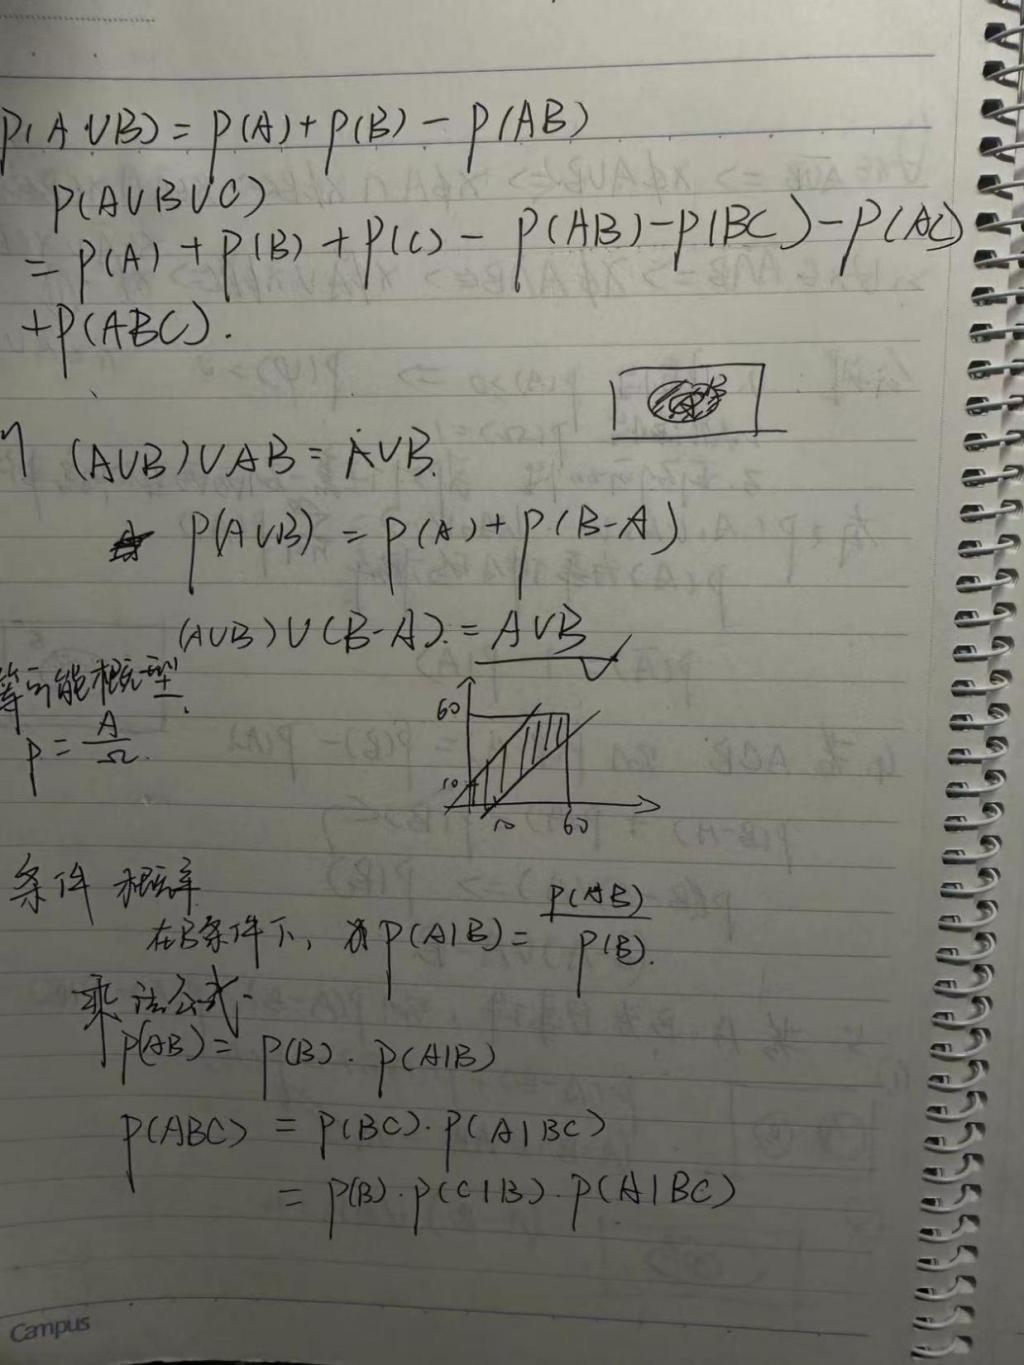 P(A∪B) = P(A) + P(B) - P(AB)
P(A∪B∪C)
= P(A) + P(B) + P(C) - P(AB) - P(BC) - P(AC)
+ P(ABC).
B
(A∪B)∪AB = A∪B.
P(A∪B) = P(A) + P(B-A)
(A∪B)∪(B-A). = A∪B
等可能概型.
P = A/Ω.
60
10
10 60
条件概率
在B条件下, P(A|B) = P(AB)/P(B).
乘法公式.
P(AB) = P(B)·P(A|B)
P(ABC) = P(BC)·P(A|BC)
= P(B)·P(C|B)·P(A|BC)
Campus